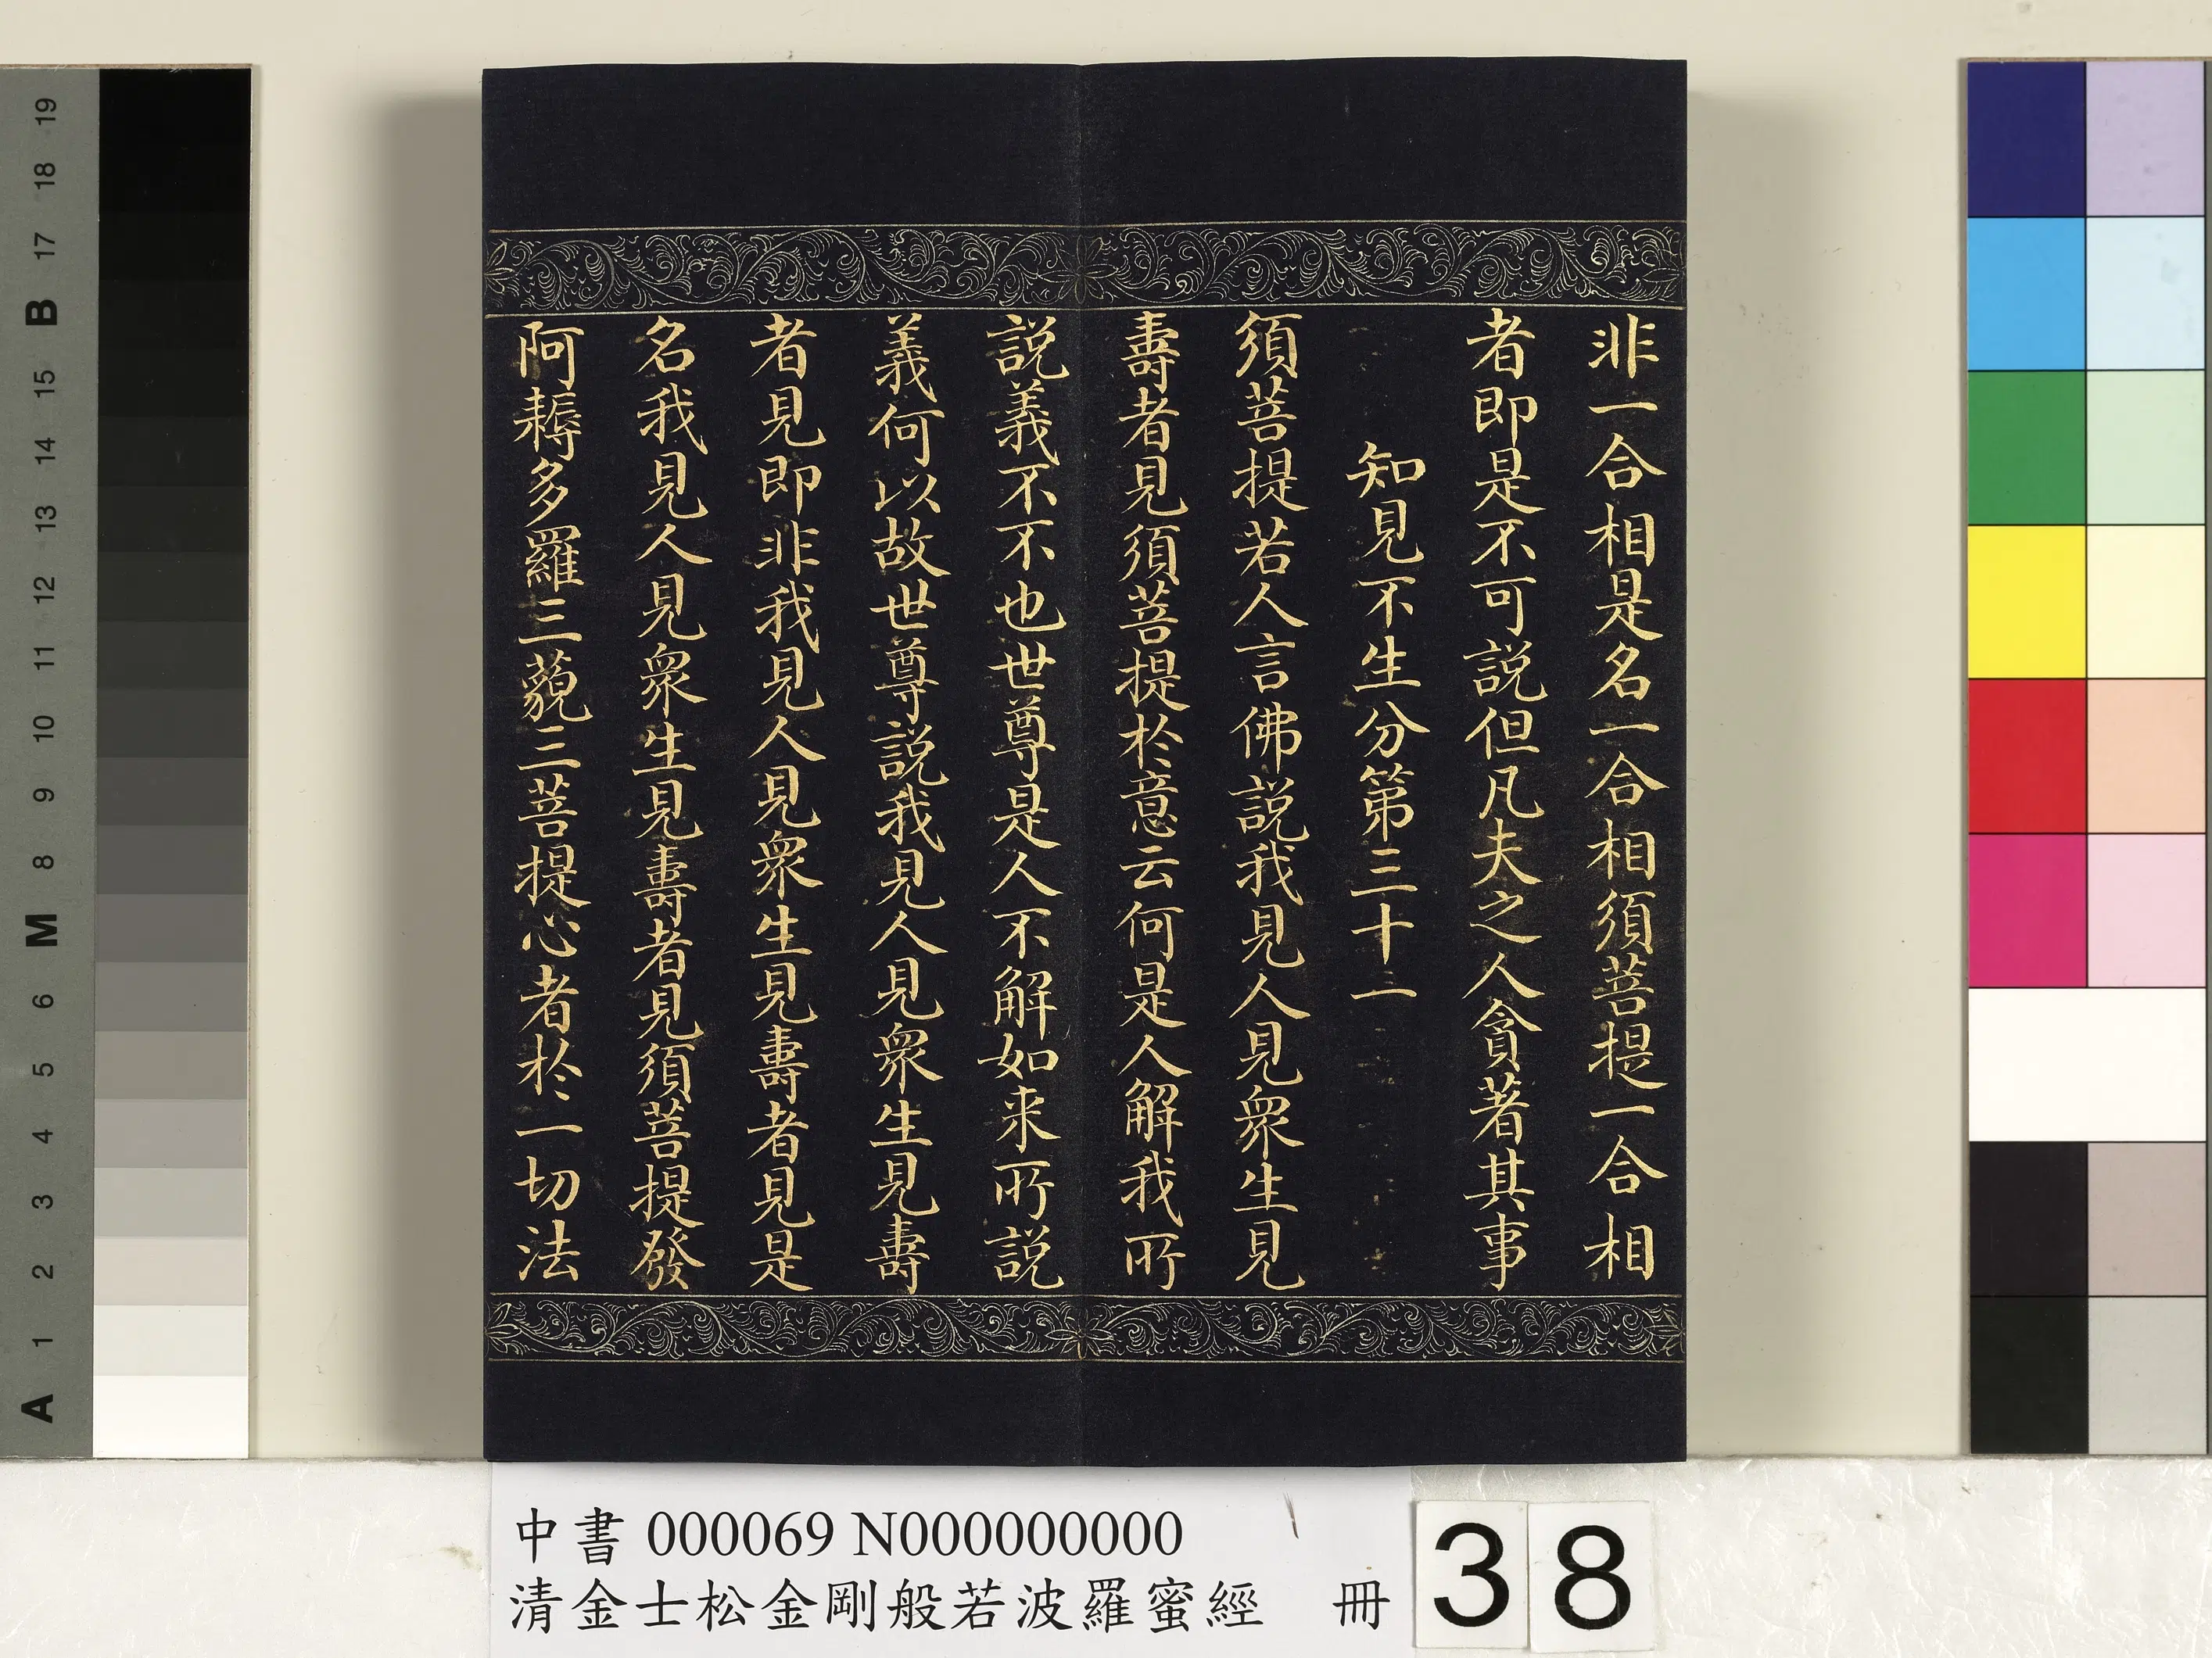 非一合相是名一合相須菩提一合相
者即是不可説但凡夫之人貪著其事
知見不生分第三十一
須菩提若人言佛説我見人見衆生見
壽者見須菩提於意云何是人解我所
説義不不也世尊是人不解如来所説
義何以故世尊説我見人見衆生見壽
者見即非我見人見衆生見壽者見是
名我見人見衆生見壽者見須菩提發
阿耨多羅三藐三菩提心者於一切法
中書 000069 N000000000
清金士松金剛般若波羅蜜經 冊
38
A 1 2 3 4 5 6 M 8 9 10 11 12 13 14 15 B 17 18 19